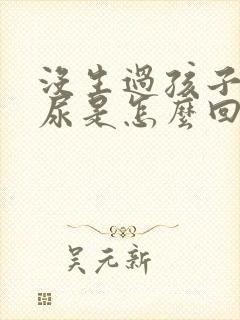 沒生過孩子
尿是怎麼回
吴元新